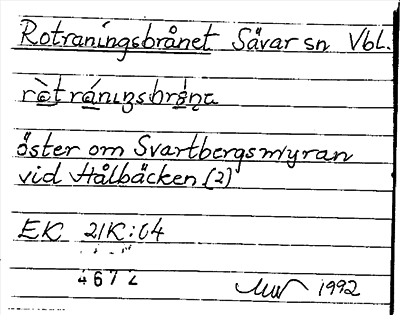 Rotraningsbrånet Sävar sn Vbl.
öster om Svartbergsmyran
vid Hålbäcken (2)
EK 21K:04
4672
1992